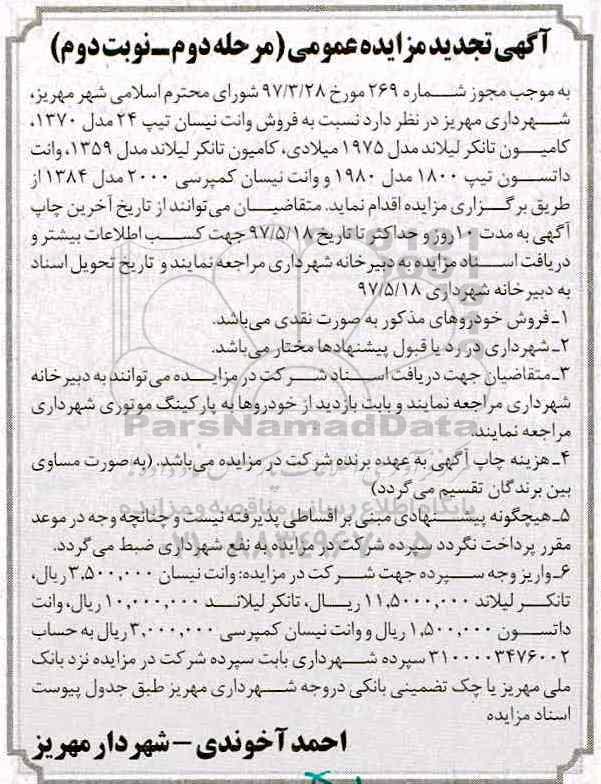 آگهی تجدید مزایده عمومی (مرحله دوم ـ نوبت دوم)
به موجب مجوز شماره ۲۶۹ مورخ ۹۷/۳/۲۸ شورای محترم اسلامی شهر مهریز،
شهرداری مهریز در نظر دارد نسبت به فروش وانت نیسان تیپ ۲۴ مدل ۱۳۷۰،
کامیون تانکر لیلاند مدل ۱۹۷۵ میلادی، کامیون تانکر لیلاند مدل ۱۳۵۹، وانت
داتسون تیپ ۱۸۰۰ مدل ۱۹۸۰ و وانت نیسان کمپرسی ۲۰۰۰ مدل ۱۳۸۴ از
طریق برگزاری مزایده اقدام نماید. متقاضیان می‌توانند از تاریخ آخرین چاپ
آگهی به مدت ۱۰ روز و حداکثر تا تاریخ ۹۷/۵/۱۸ جهت کسب اطلاعات بیشتر و
دریافت اسناد مزایده به دبیرخانه شهرداری مراجعه نمایند و تاریخ تحویل اسناد
به دبیرخانه شهرداری ۹۷/۵/۱۸
۱ـ فروش خودروهای مذکور به صورت نقدی می‌باشد.
۲ـ شهرداری در رد یا قبول پیشنهادها مختار می‌باشد.
۳ـ متقاضیان جهت دریافت اسناد شرکت در مزایده می‌توانند به دبیرخانه
شهرداری مراجعه نمایند و بابت بازدید از خودروها به پارکینگ موتوری شهرداری
مراجعه نمایند.
ParsNamadData
۴ـ هزینه چاپ آگهی به عهده برنده شرکت در مزایده می‌باشد. (به صورت مساوی
بین برندگان تقسیم می‌گردد)
پایگاه اطلاع رسانی مناقصه و مزایده
۵ـ هیچگونه پیشنهادی مبنی بر اقساطی پذیرفته نیست و چنانچه وجه در موعد
مقرر پرداخت نگردد سپرده شرکت در مزایده به نفع شهرداری ضبط می‌گردد.
۰۲۱-۸۸۳۴۹۶۷۰-۵
۶ـ واریز وجه سپرده جهت شرکت در مزایده: وانت نیسان ۳,۵۰۰,۰۰۰ ریال،
تانکر لیلاند ۱۱,۵۰۰۰,۰۰۰ ریال، تانکر لیلاند ۱۰,۰۰۰,۰۰۰ ریال، وانت
داتسون ۱,۵۰۰,۰۰۰ ریال و وانت نیسان کمپرسی ۳,۰۰۰,۰۰۰ ریال به حساب
۳۱۰۰۰۰۳۴۷۶۰۰۲ سپرده شهرداری بابت سپرده شرکت در مزایده نزد بانک
ملی مهریز یا چک تضمینی بانکی دروجه شهرداری مهریز طبق جدول پیوست
اسناد مزایده
احمد آخوندی – شهردار مهریز